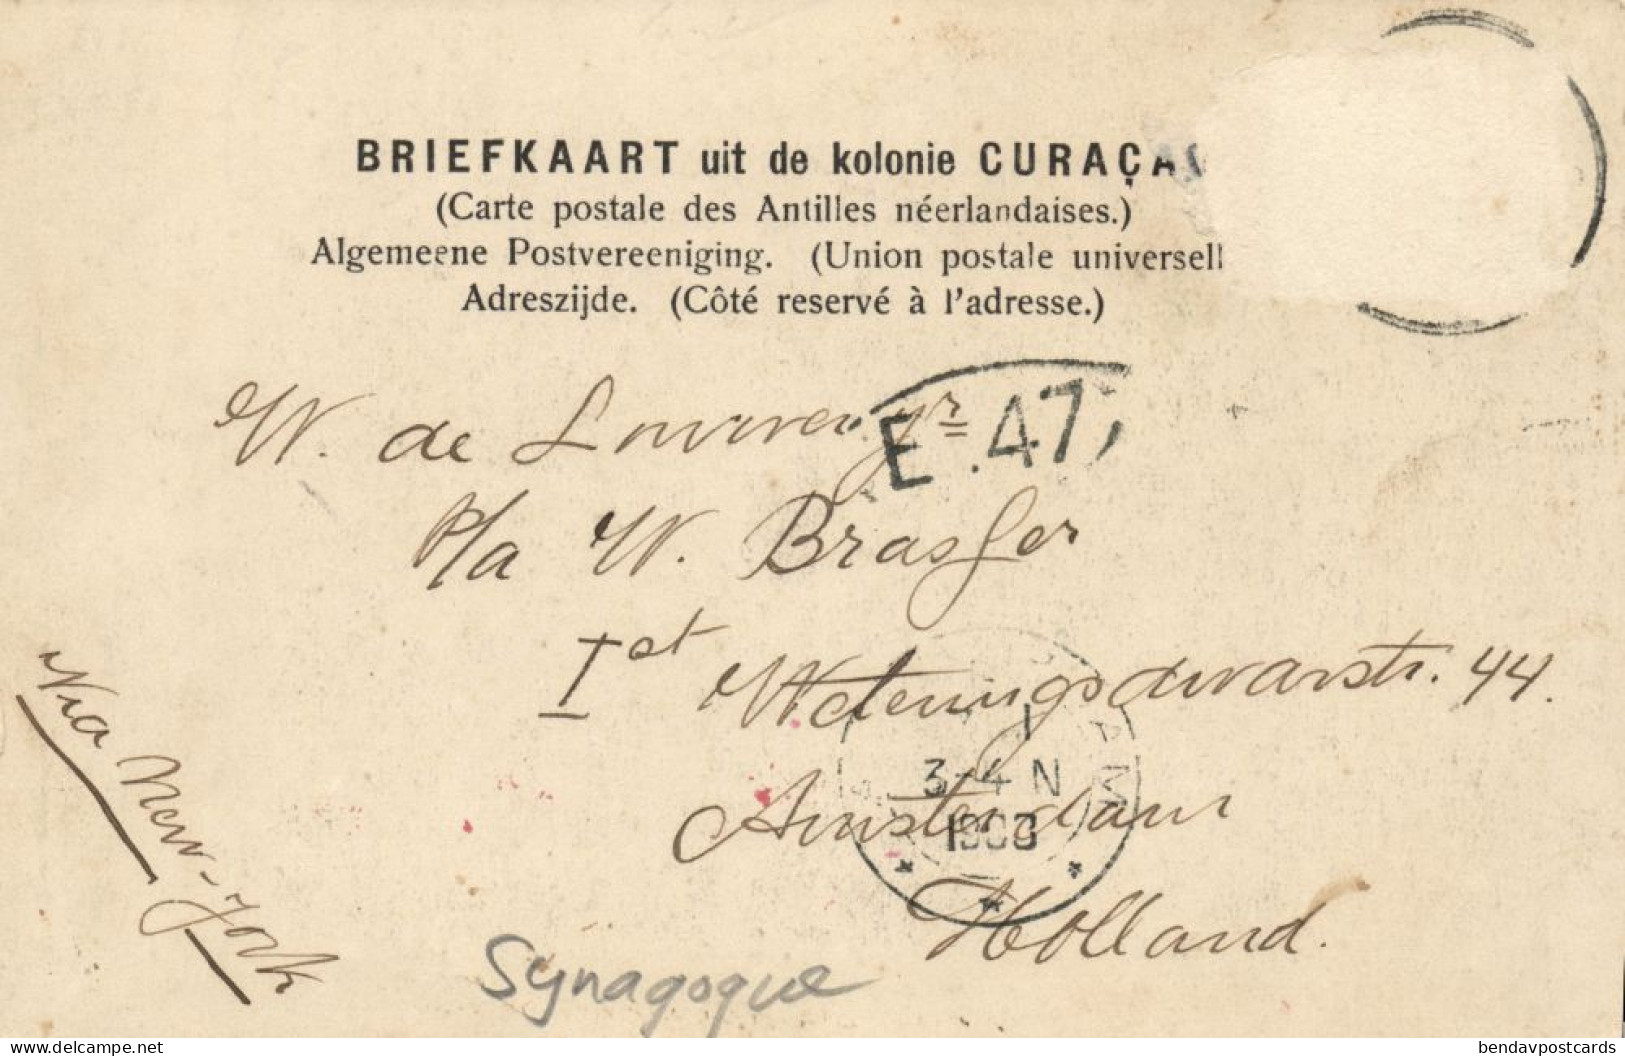 BRIEFKAART uit de kolonie CURAÇA
(Carte postale des Antilles néerlandaises.)
Algemeene Postvereeniging. (Union postale universell
Adreszijde. (Côté reservé à l'adresse.)
W. de jr
E.47,
P/a W. Brasser
Iet Weteringsdwarsstr. 44.
3-4 N
Amsterdam
Holland.
Via New-York
Synagoque
www.delcampe.net
bendavpostcards